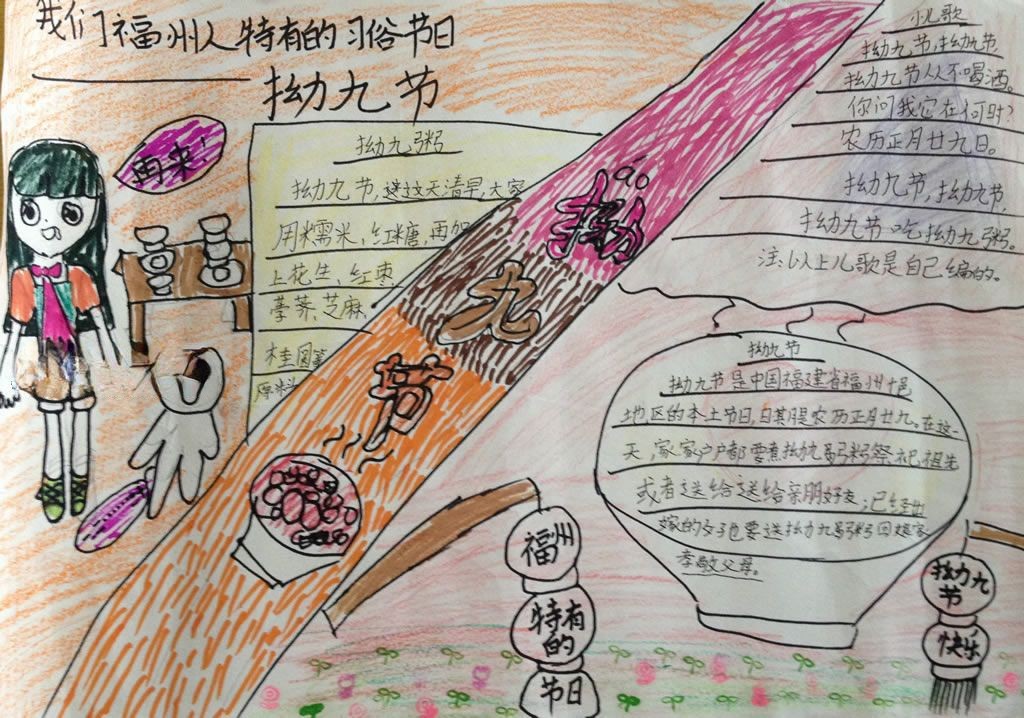 我们福州人特有的习俗节日
拗九节
再来!
拗九粥
拗九节,这天清早,大家
用糯米、红糖,再加
上花生、红枣
荸荠、芝麻,
桂圆等
原料
拗
九
节
小儿歌
拗九节,拗九节,
拗九节从不喝酒。
你问我它在何时?
农历正月廿九日。
拗九节,拗九节,
拗九节吃拗九粥。
注:以上儿歌是自己编的。
拗九节
拗九节是中国福建省福州十邑
地区的本土节日,日期是农历正月廿九。在这一
天,家家户户都要煮拗九粥祭祀祖先
或者送给送给亲朋好友;已经出
嫁的女子也要送拗九粥回娘家
孝敬父母。
福州
特有
的
节日
拗九
节
快乐